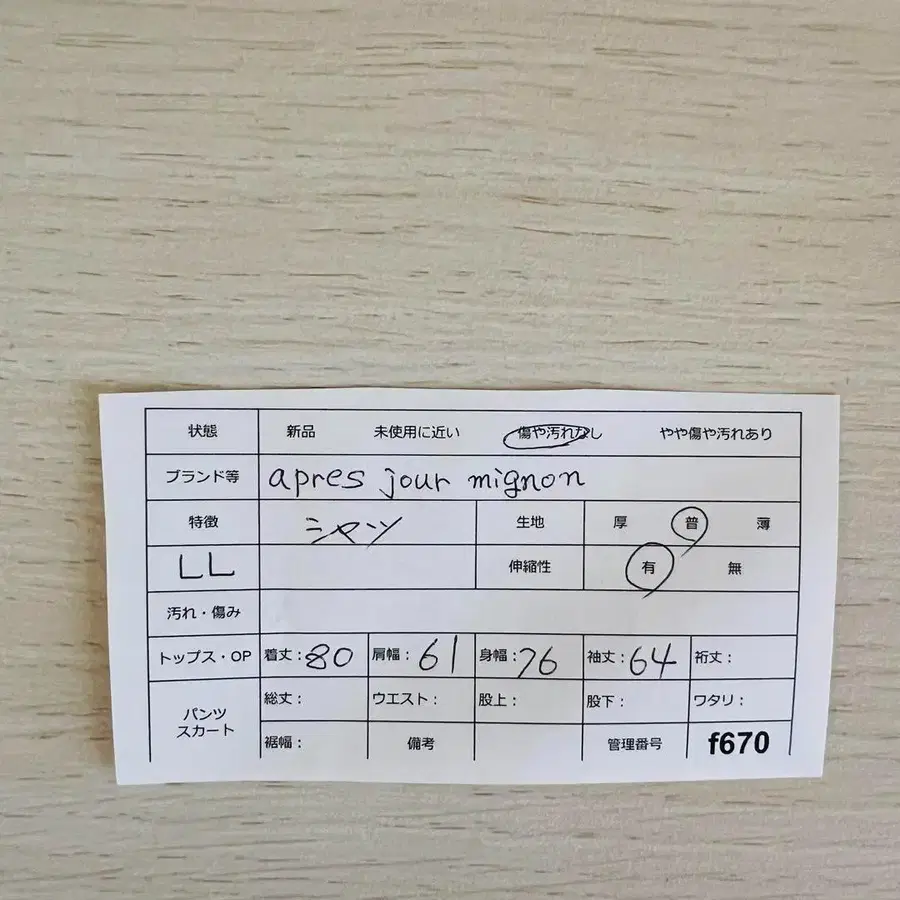 状態 新品 未使用に近い 傷や汚れなし やや傷や汚れあり
ブランド等 apres jour mignon
特徴 シャツ 生地 厚 普 薄
LL 伸縮性 有 無
汚れ・傷み
トップス・OP 着丈：80 肩幅：61 身幅：76 袖丈：64 裄丈：
パンツ スカート 総丈： ウエスト： 股上： 股下： ワタリ：
裾幅： 備考 管理番号 f670